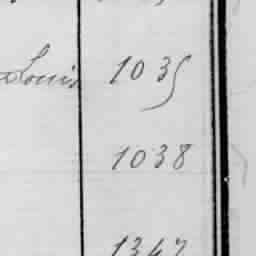 Louis 1035
1038
1347